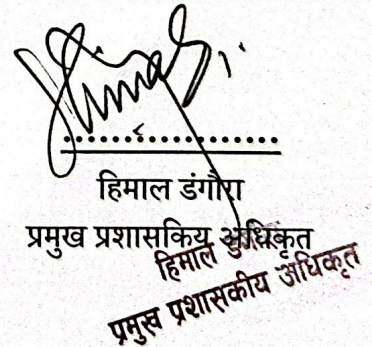 हिमाल डंगौरा
प्रमुख प्रशासकिय अधिकृत
हिमाल
प्रमुख प्रशासकीय अधिकृत